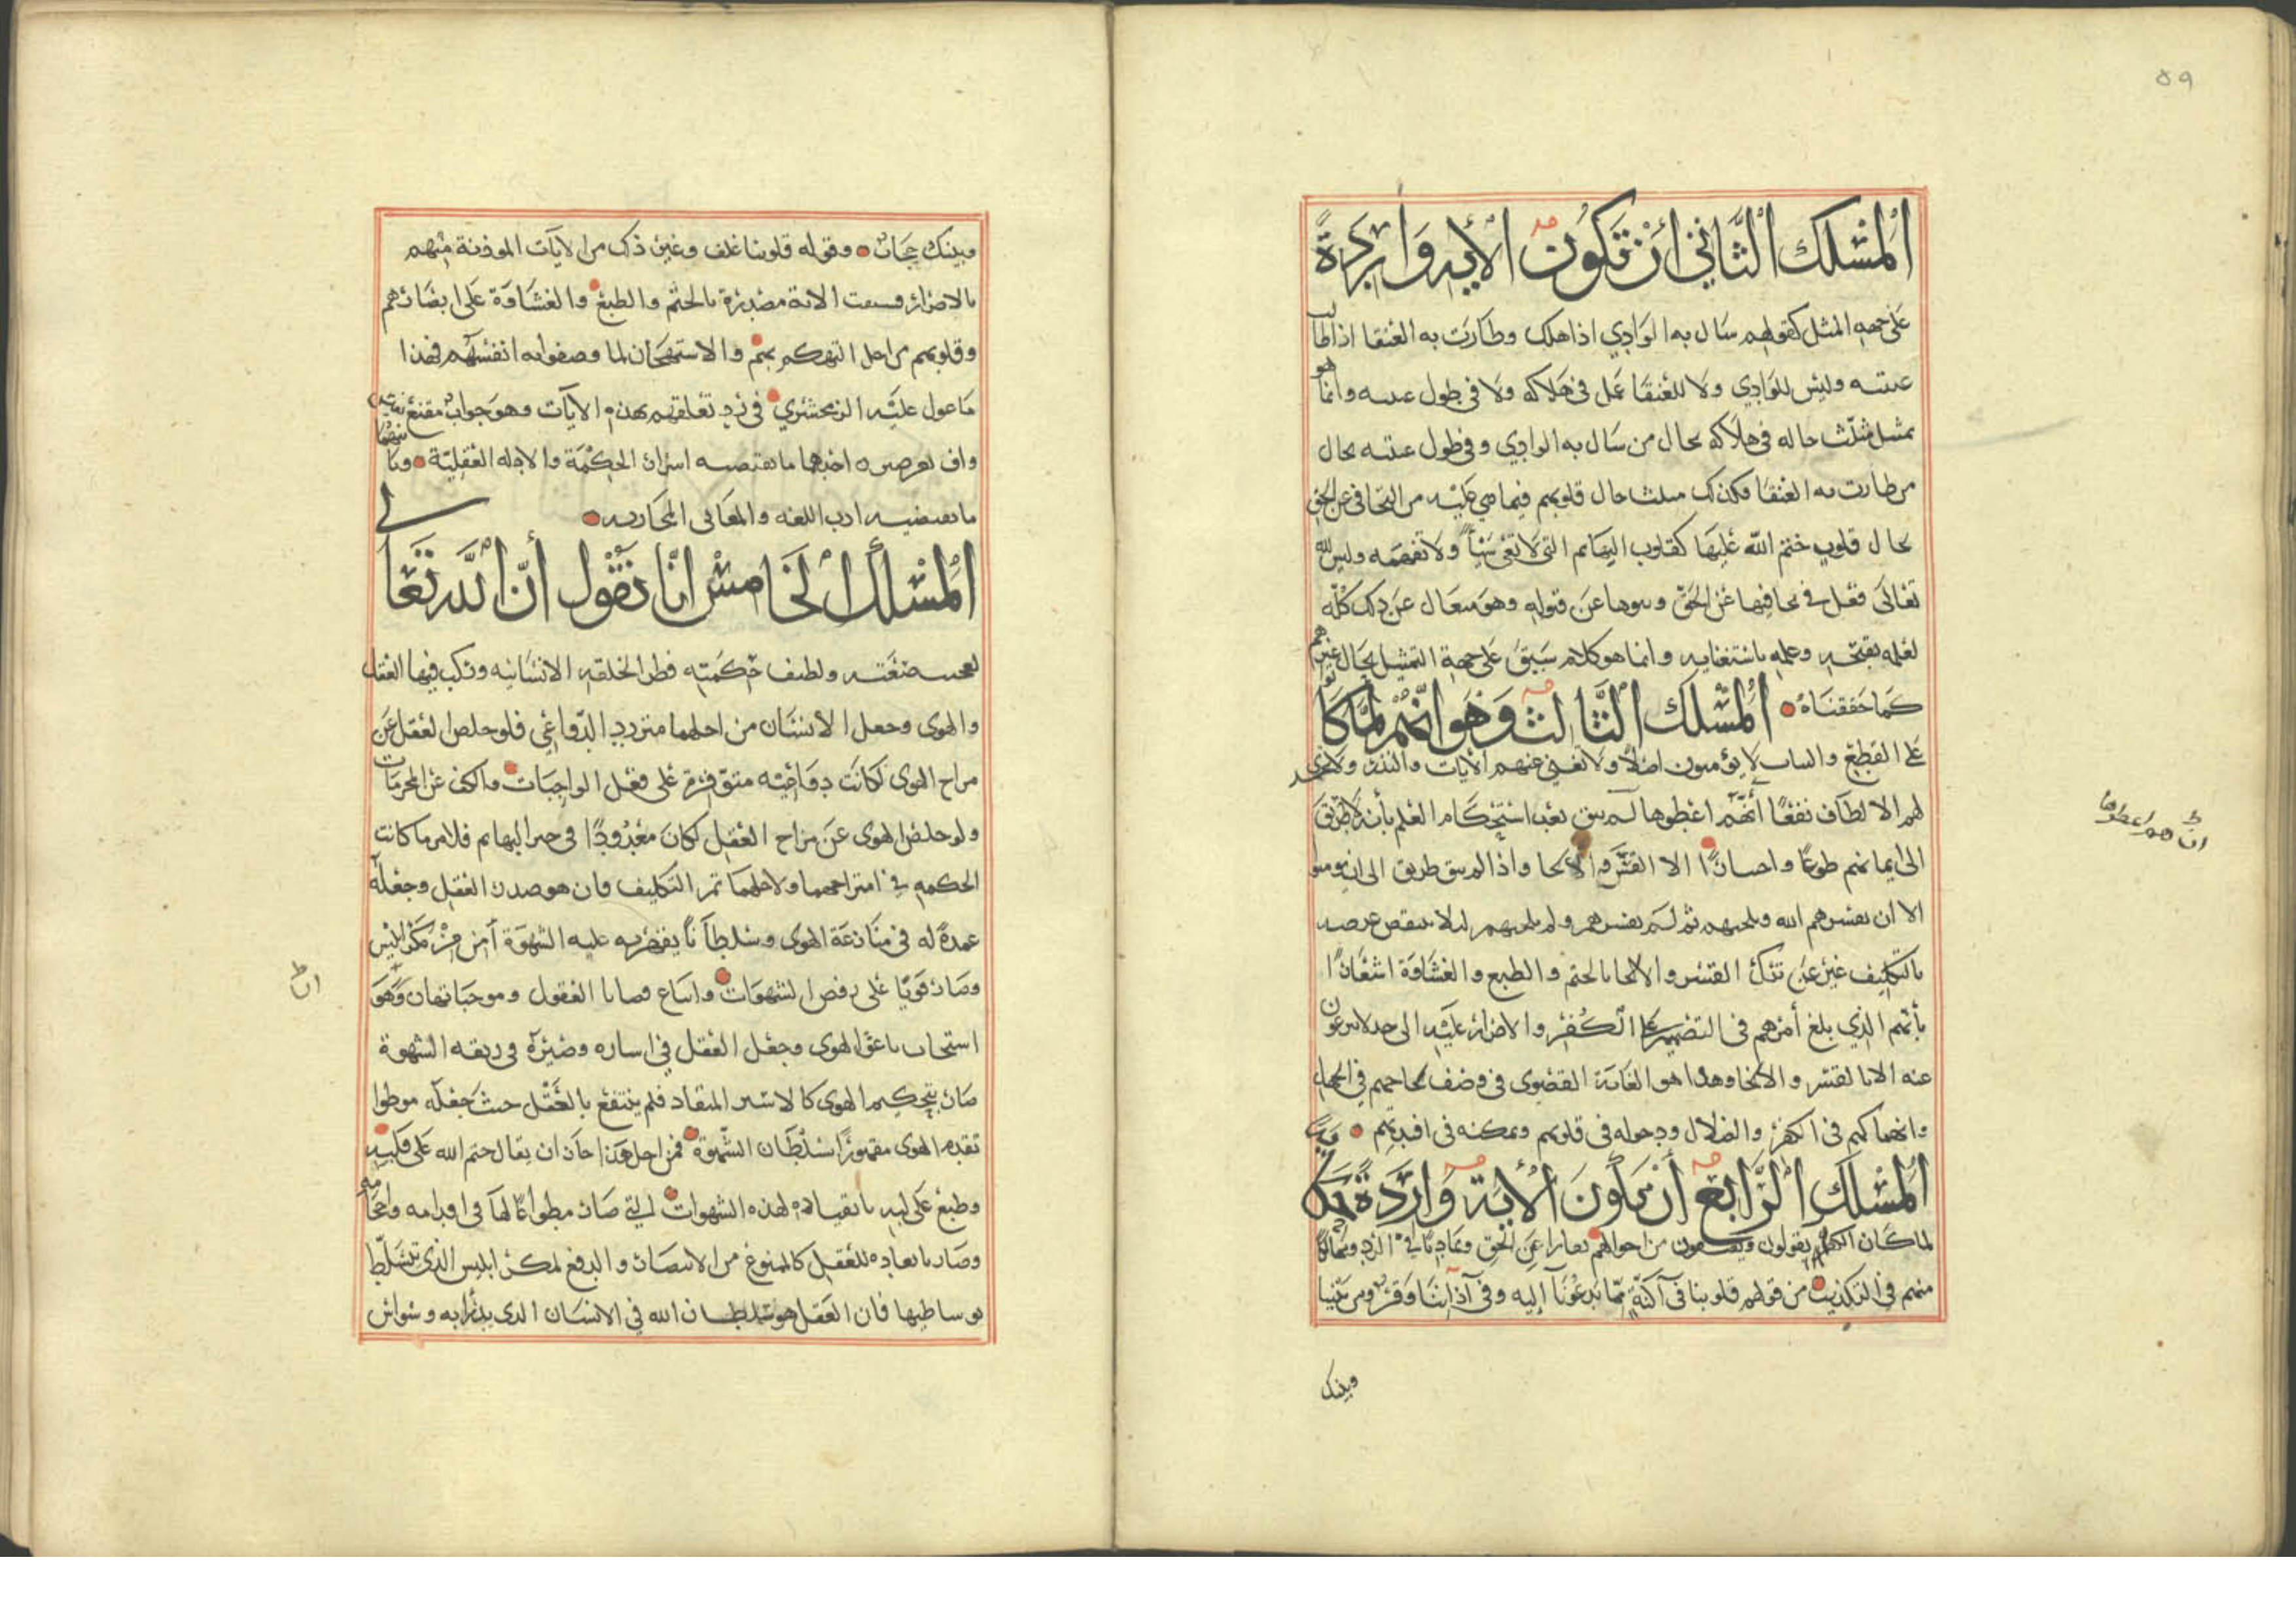 ٥٩
المسلك الثاني أن تكون الأية واردة
على جهه المثل كقولهم سال به الوادي اذا هلك وطارت به العنقا اذا طالت
غيبته وليس للوادي ولا للعنقا عمل في هلاكه ولا في طول غيبته وانما هو
تمثيل مثلت حاله في هلاكه بحال من سال به الوادي وفي طول غيبته بحال
من طارت به العنقا فكذلك مثلت حال قلوبهم فيما هي عليه من التجافي عن الحق
بحال قلوب ختم الله عليها كقلوب البهائم التي لا تعي شيأ ولا تفهمه وليس لله
تعالى فعل في تجافيها عن الحق ونبوها عن قبوله وهو متعال عن ذلك كله
لعلمه بقبحه وعلمه باستغنايه وانما هو كلام سبق على جهة التمثيل بحال غيرهم
كما حققناه المسلك الثالث وهو انهم لما كانوا
على القطع والبتات لا يؤمنون اصلا ولا تغني عنهم الأيات والنذر ولا تجدي
لهم الالطاف نفعا أنهم اعطوها لم يبق بعد استحكام العلم بأنه لا طريق
ان هم اعطوها
الى ايمانهم طوعا واختيارا الا القسر والالجا واذا لم يبق طريق الى ان يومنوا
الا ان يقسرهم الله ويلجيهم ثم لم يقسرهم ولم يلجيهم ليلا ينتقض غرضه
بالتكليف عبر عن ترك القسر والالجا بالختم والطبع والغشاوة اشعارا
بأنهم الذي بلغ أمرهم في التصميم على الكفر والاضرار عليه الى حد لا يرعوون
عنه الا بالقسر والالجا وهذا هو الغاية القصوى في وصف لجاجهم في الجهل
وانهماكهم في الكفر والضلال ودخوله في قلوبهم وتمكنه في افيدتهم
المسلك الرابع أن يكون الأية واردة
لما كان الكفار يقولون من احوالهم عن الحق في الرد
منهم في التكذيب من قولهم قلوبنا في آكنة مما تدعونا إليه وفي آذاننا وقر ومن بيننا
وبينك
وبينك حجاب وقوله قلوبنا غلف وغير ذلك من الايآت الموذنة منهم
بالاضرار فسيقت الاية مصدرة بالختم والطبع والغشاوة على ابصارهم
وقلوبهم من اجل التهكم بهم والاستهجان لما وصفوا به انفسهم فهذا
ما عول عليه الزمخشري في رد تعلقهم بهذه الآيات وهو جواب مقنع
واف بغرضين احدهما ما يقتضيه اسرار الحكمة والادله العقلية وثانيهما
ما يقتضيه ادب اللغه والمعاني المجازيه
المسلك الخامس انا نقول أن الله تعالى
لعجيب صنعته ولطيف حكمته فطر الخلقه الانسانيه وركب فيها العقل
والهوى وجعل الأنسان من اجلهما متردد الدواعي فلو خلص العقل عن
مزاح الهوى لكانت دواعيه متوفرة على فعل الواجبات والكف عن المحرمات
ولو خلص الهوى عن مزاح العقل لكان معدودا في حيز البهايم فلامر ما كانت
الحكمه في امتزاجهما ولاجلهما تم التكليف فان هو صدر العقل وجعله
عمدة له في منازعة الهوى وسلطانا يقهر به عليه الشهوة أمن من مكر ابليس
وصار قويا على رفض الشهوات واتباع قضايا العقول وموجباتها وهو
ان
استجاب باعث الهوى وجعل العقل في اساره وصيره في ربقه الشهوة
صار بتحكيم الهوى كالاسير المنقاد فلم ينتفع بالعقل حيث جعله موطوا
تقدم الهوى مقهورا بسلطان الشهوة فمن اجل هذا جاز ان يقال ختم الله على قلبه
وطبع على لبه بانقياده لهذه الشهوات التي صار مطواعا لها في اقدامه واحجامه
وصار بابعاده للعقل كالممنوع من الانتصار والدفع لمكر ابليس الذي تسلط
بوساطتها فان العقل هو سلطان الله في الانسان الذي يدرا به وسواس